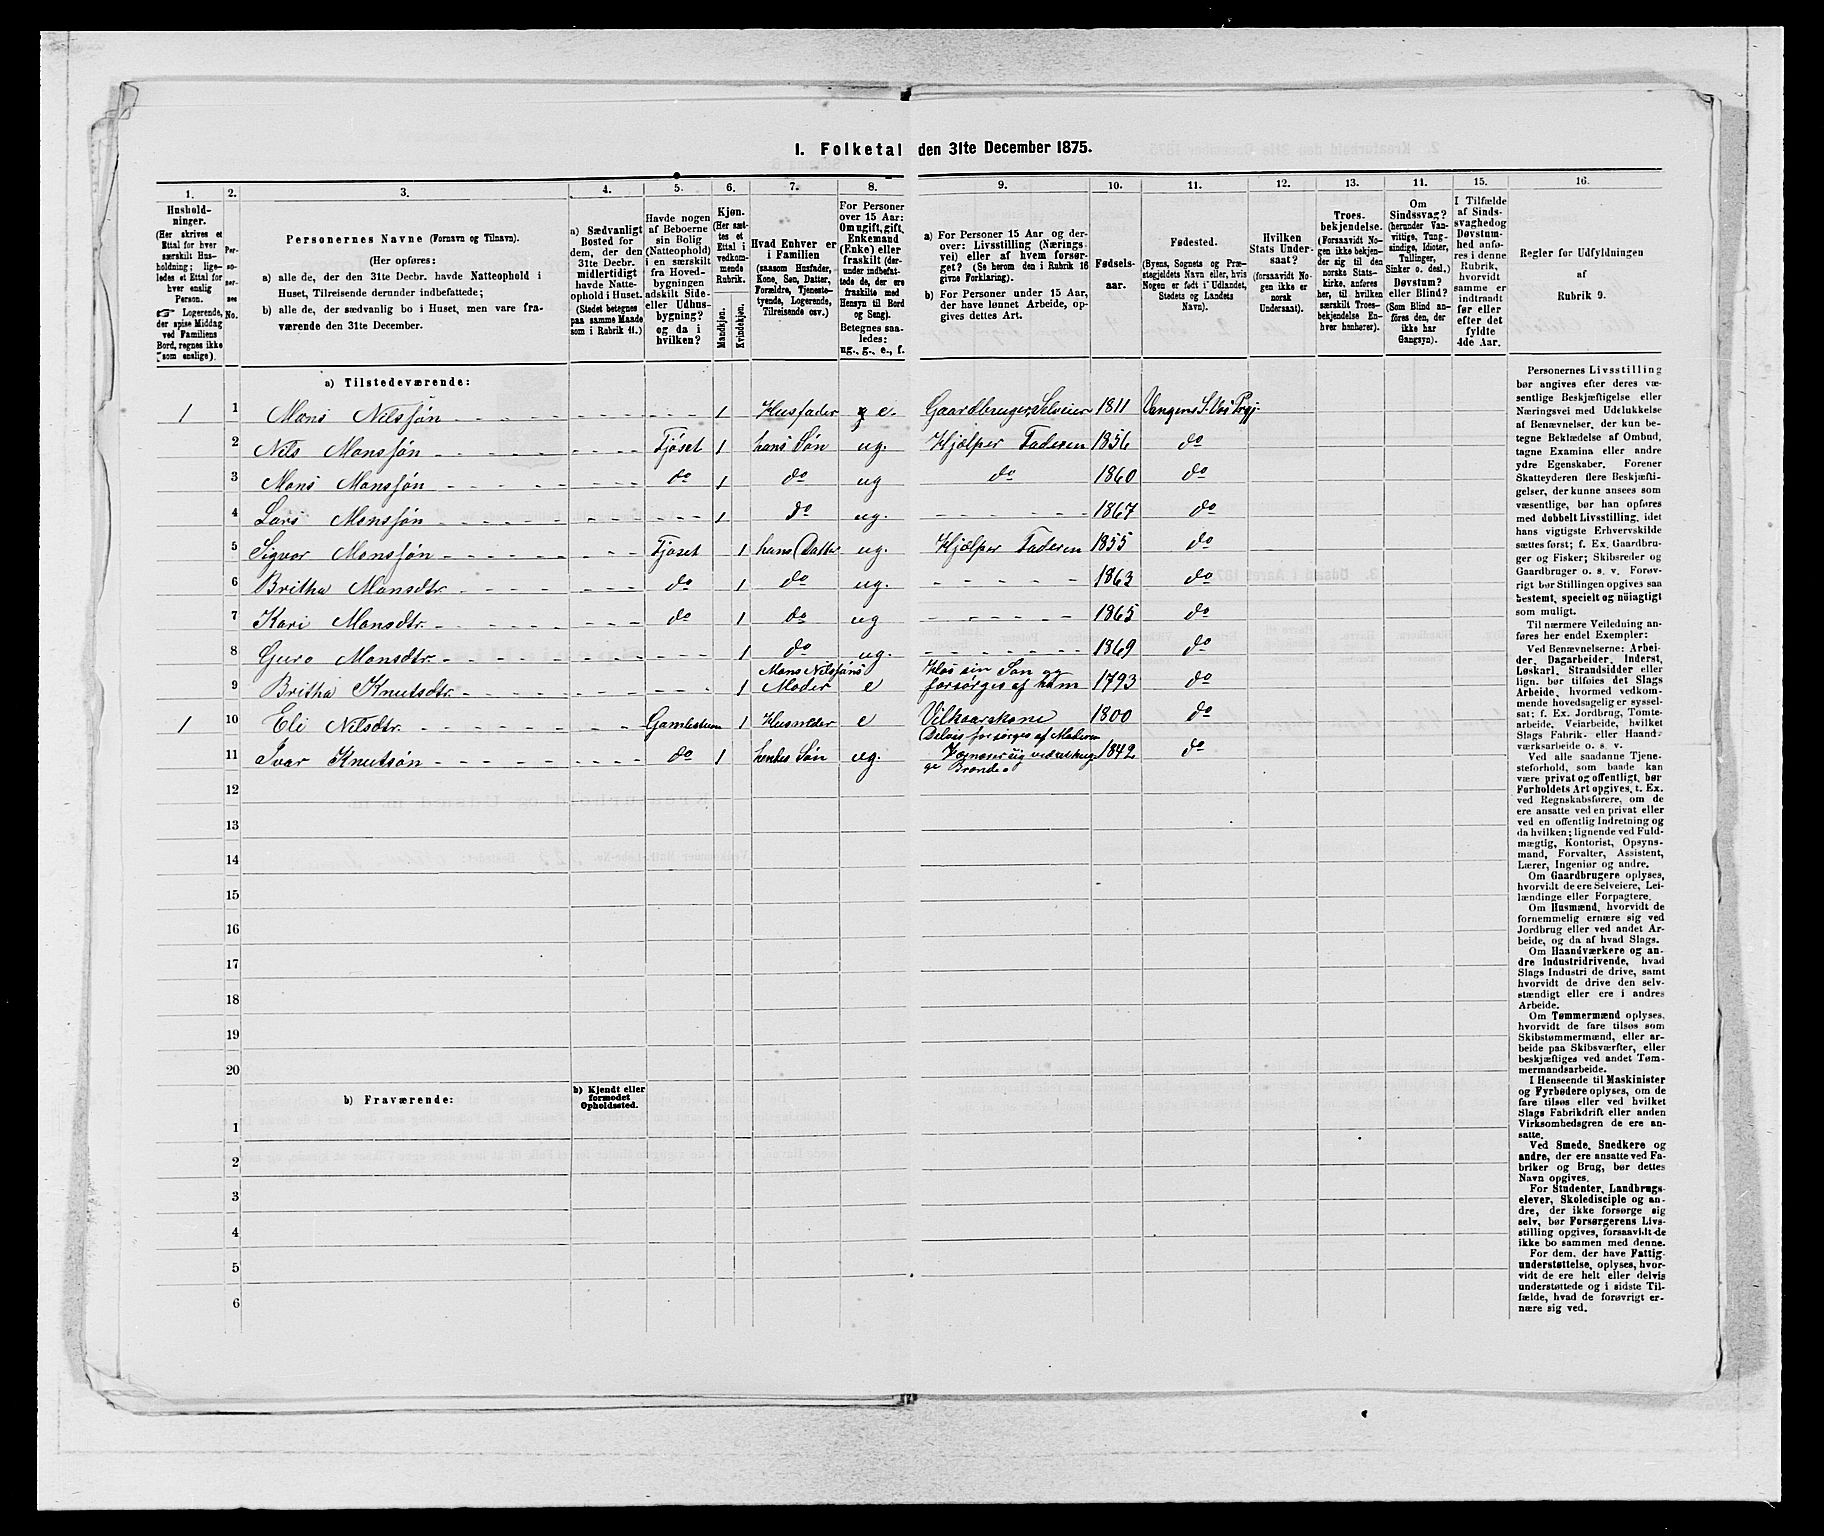 1. Folketal den 31te December 1875.
1.
Hushold-
ninger.
(Her skrives et
Ettal for hver
særskilt Hus-
holdning; lige-
ledes et Ettal for
hver enslig
Person.
☞ Logerende,
der spise Middag
ved Familiens
Bord, regnes ikke
som enslige).
2.
Per-
so-
ner-
nes
No.
3.
Personernes Navne (Fornavn og Tilnavn).
(Her opføres:
a) alle de, der den 31te Decbr. havde Natteophold i
Huset, Tilreisende derunder indbefattede;
b) alle de, der sædvanlig bo i Huset, men vare fra-
værende den 31te December.
4.
a) Sædvanligt
Bosted for
dem, der den
31te Decbr.
midlertidigt
havde Natte-
ophold i Huset.
(Stedet betegnes
paa samme Maade
som i Rubrik 11.)
5.
Havde nogen
af Beboerne
sin Bolig
(Natteophold)
i en særskilt
fra Hoved-
bygningen
adskilt Side-
eller Udhus-
bygning?
og da i
hvilken?
6.
Kjøn.
(Her sæt-
tes et
Ettal i
vedkom-
mende
Rubrik.
Mandkjøn.
Kvindekjøn.
7.
Hvad Enhver er
i Familien
(saasom Husfader,
Kone, Søn, Datter,
Forældre, Tjeneste-
tyende, Logerende,
Tilreisende osv.)
8.
For Personer
over 15 Aar:
Om ugift, gift,
Enkemand
(Enke) eller
fraskilt (der-
under indbefat-
tede de, der ere
fraskilte med
Hensyn til Bord
og Seng).
Betegnes saa-
ledes:
ug., g., e., f.
9.
a) For Personer 15 Aar og der-
over: Livsstilling (Nærings-
vei) eller af hvem forsør-
get? (Se herom den i Rubrik 16
givne Forklaring).
b) For Personer under 15 Aar,
der have lønnet Arbeide, op-
gives dettes Art.
10.
Fødsels-
aar.
11.
Fødested.
(Byens, Sognets og Præ-
stegjeldets Navn eller, hvis
Nogen er født i Udlandet,
Stedets og Landets
Navn).
12.
Hvilken
Stats Under-
saat?
(forsaavidt No-
gen ikke er
norsk
Undersaat).
13.
Troes-
bekjendelse.
(Forsaavidt No-
gen ikke bekjen-
der sig til den
norske Stats-
kirke, anføres
her, til hvilken
særskilt Troes-
bekjendelse En-
hver hanhører).
11.
Om
Sindssvag?
(herunder Van-
vittige, Tung-
sindige, Idioter,
Tullinger,
Sinker o. desl.)
Døvstum?
eller Blind?
(Som Blind an-
føres den, der
ikke har
Gangsyn).
15.
I Tilfælde
af Sinds-
svaghed og
Døvstum-
hed anfø-
res i denne
Rubrik,
hvorvidt
samme er
indtraadt
før eller
efter det
fyldte
4de Aar.
16.
Regler for Udfyldningen
af
Rubrik 9.
a) Tilstedeværende:
1 1 Mons Nilssøn 1 Husfader e. Gaardbruger, Selveier 1811 Vangens S. Vos Prgj.
2 Nils Monssøn Fjøset 1 hans Søn ug. Hjælper Faderen 1856 do
3 Mons Monssøn do 1 do ug do 1860 do
4 Lars Monssøn 1 do ug. 1867 do
5 Sigvor Monssøn Fjøset 1 hans Datter ug. Hjælper Faderen 1855 do
6 Britha Monsdtr. do 1 do ug. 1863 do
7 Kari Monsdtr. do 1 do ug 1865 do
8 Guro Monsdtr. 1 do ug. 1869 do
9 Britha Knutsdtr. 1 Mons Nilssøns Moder e Hos sin Søn og forsørges af ham 1793 do
1 10 Eli Nilsdtr. Gamlestuen 1 Husmoder e Vilkaarskone 1800 do
11 Ivar Knutsøn do 1 hendes Søn ug. Delvis forsørges af Moderen 1842 do
12
13
14
15
16
17
18
19
20
b) Fraværende:
b) Kjendt eller
formodet
Opholdssted.
1
2
3
4
5
6
Personernes Livsstilling
bør angives efter deres væ-
sentlige Beskjæftigelse eller
Næringsvei med Udelukkelse
af Benævnelser, der kun be-
tegne Beklædelse af Ombud,
tagne Examina eller andre
ydre Egenskaber. Forener
Skatteyderen flere Beskjæfti-
gelser, der kunne ansees som
væsentlige, bør han opføres
med dobbelt Livsstilling, idet
hans vigtigste Erhvervskilde
sættes først; f. Ex. Gaardbru-
ger og Fisker; Skibsreder og
Gaardbruger o. s. v. Forøv-
rigt bør Stillingen opgives saa
bestemt, specielt og nöiagtigt
som muligt.
Til nærmere Veiledning an-
føres her endel Exempler:
Ved Benævnelserne: Arbei-
der, Dagarbeider, Inderst,
Løskarl, Strandsidder eller
lign. bør tilføies det Slags
Arbeide, hvormed vedkom-
mende hovedsagelig er syssel-
sat; f. Ex. Jordbrug, Tomte-
arbeide, Veiarbeide, hvilket
Slags Fabrik- eller Haand-
værksarbeide o. s. v.
Ved alle saadanne Tjene-
steforhold, som baade kan
være privat og offentligt, bør
Forholdets Art opgives, t. Ex.
ved Regnskabsførere, om de
ere ansatte ved en privat eller
ved en offentlig Indretning og
da hvilken; lignende ved Fuld-
mægtig, Kontorist, Opsyns-
mand, Forvalter, Assistent,
Lærer, Ingeniør og andre.
Om Gaardbrugere oplyses,
hvorvidt de ere Selveiere, Lei-
lændinge eller Forpagtere.
Om Husmænd, hvorvidt de
fornemmelig ernære sig ved
Jordbrug eller ved andet Ar-
beide, og da af hvad Slags.
Om Haandværkere og an-
dre Industridrivende, hvad
Slags Industri de drive, samt
hvorvidt de drive den selv-
stændigt eller ere i andres
Arbeide.
Om Tømmermænd oplyses,
hvorvidt de fare tilsøs som
Skibstømmermænd, eller ar-
beide paa Skibsværfter, eller
beskjæftiges ved andet Tøm-
mermandsarbeide.
I Henseende til Maskinister
og Fyrbødere oplyses, om de
fare tilsøs eller ved hvilket
Slags Fabrikdrift eller anden
Virksomhedsgren de ere an-
satte.
Ved Smede, Snedkere og
andre, der ere ansatte ved Fa-
briker og Brug, bør dettes
Navn opgives.
For Studenter, Landbrugs-
elever, Skoledisciple og an-
dre, der ikke forsørge sig
selv, bør Forsørgerens Livs-
stilling opgives, forsaavidt de
ikke bo sammen med denne.
For dem, der have Fattig-
understøttelse, oplyses, hvor-
vidt de ere helt eller delvis
understøttede og i sidste Til-
fælde, hvad de forøvrigt er-
nære sig ved.